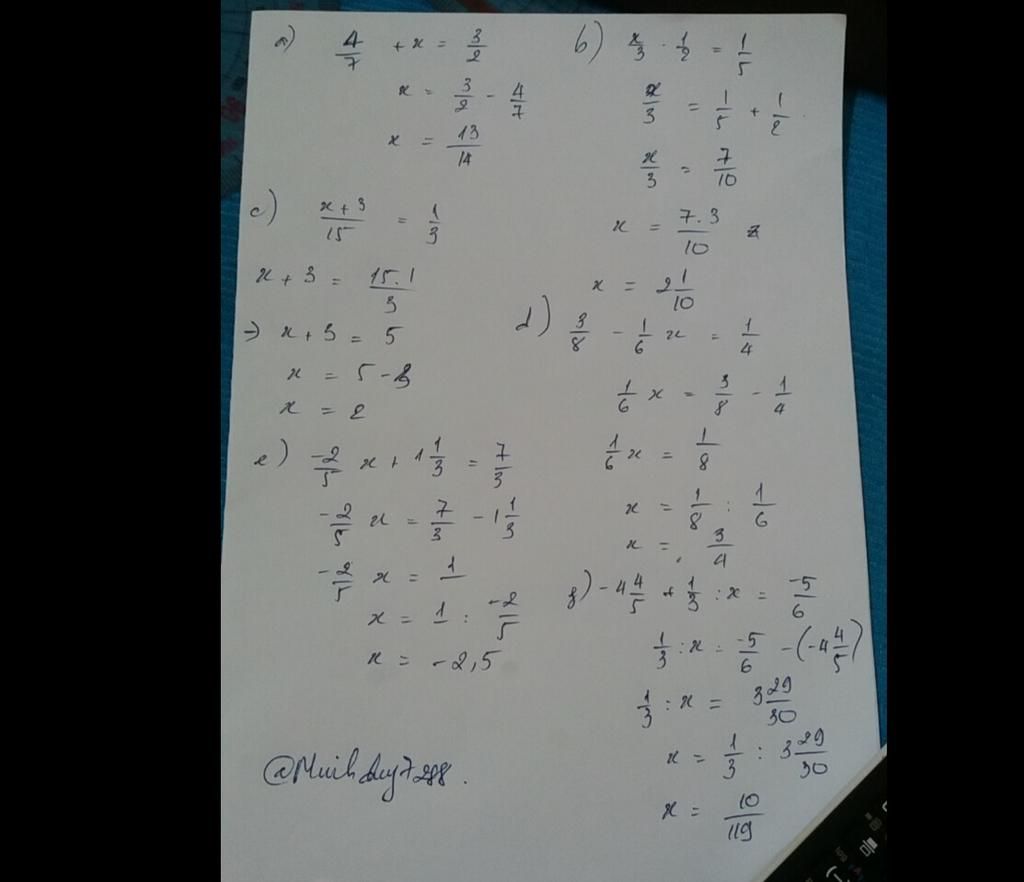 a) 4/7 + x = 3/2
x = 3/2 - 4/7
x = 13/14
b) x/3 - 1/2 = 1/5
x/3 = 1/5 + 1/2
x/3 = 7/10
x = 7.3/10
x = 2 1/10
c) x+3/15 = 1/3
x + 3 = 15.1/3
=> x + 3 = 5
x = 5 - 3
x = 2
d) 3/8 - 1/6 x = 1/4
1/6 x = 3/8 - 1/4
1/6 x = 1/8
x = 1/8 : 1/6
x = 3/4
e) -2/5 x + 1 1/3 = 7/3
-2/5 x = 7/3 - 1 1/3
-2/5 x = 1
x = 1 : -2/5
x = -2,5
g) -4 4/5 + 1/3 : x = -5/6
1/3 : x = -5/6 - (-4 4/5)
1/3 : x = 3 29/30
x = 1/3 : 3 29/30
x = 10/119